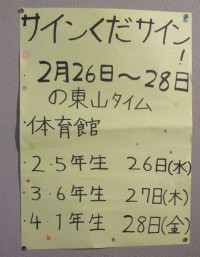 サインくださサイン!
・2月26日～28日
の東山タイム
・体育館
・2.5年生 26日(水)
・3.6年生 27日(木)
・4.1年生 28日(金)